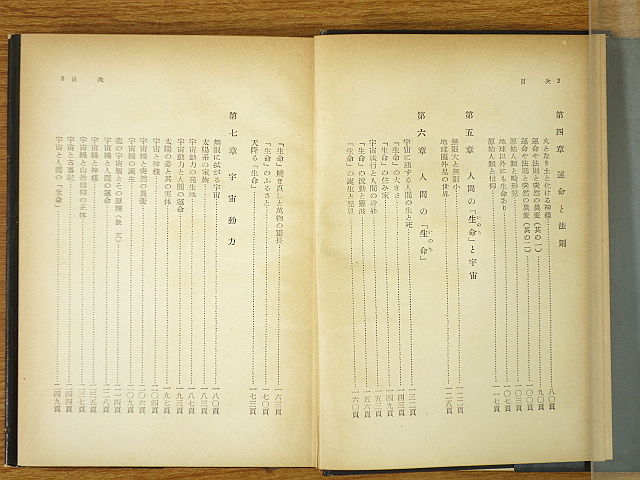 目次 2
第四章 運命と法則
火となり土と化ける神様 八〇頁
運命や法則と突然の異変(其の一) 九〇頁
運命や法則と突然の異変(其の二) 一〇〇頁
原始人類と畸形兒 一〇三頁
地球以外にも生命あり 一一〇頁
原始人類と信仰 一一七頁
第五章 人間の「生命」と宇宙
いのち
無限大と無限小 一二二頁
地球圏外星の世界 一二五頁
第六章 人間の「生命」
いのち
宇宙に通ずる人間の生と死 一三二頁
「生命」の大きさ 一四三頁
「生命」の住み家 一四九頁
宇宙流行と人間の身替 一五三頁
「生命」の波動と靈波 一五六頁
「生命」の誕生と発見 一六〇頁
目次 3
「生命」観を真上と萬物の靈長 一六三頁
「生命」のふるさと 一七〇頁
天降る「生命」 一七三頁
第七章 宇宙動力
無限に拡がる宇宙 一八〇頁
太陽系の家族 一八三頁
宇宙動力の発生地 一八七頁
宇宙動力と人間の運命 一九三頁
太陽の姿と其の実体 一九七頁
宇宙と神様 二〇四頁
宇宙線と突然の異変 二〇六頁
宇宙線の誕生 二〇九頁
二一四頁
宇宙線と人間の運命 二二八頁
宇宙線と神様 二三五頁
宇宙線と山岳信仰の正体 二三七頁
宇宙と古事記 二四四頁
宇宙と人間の「生命」 二四九頁